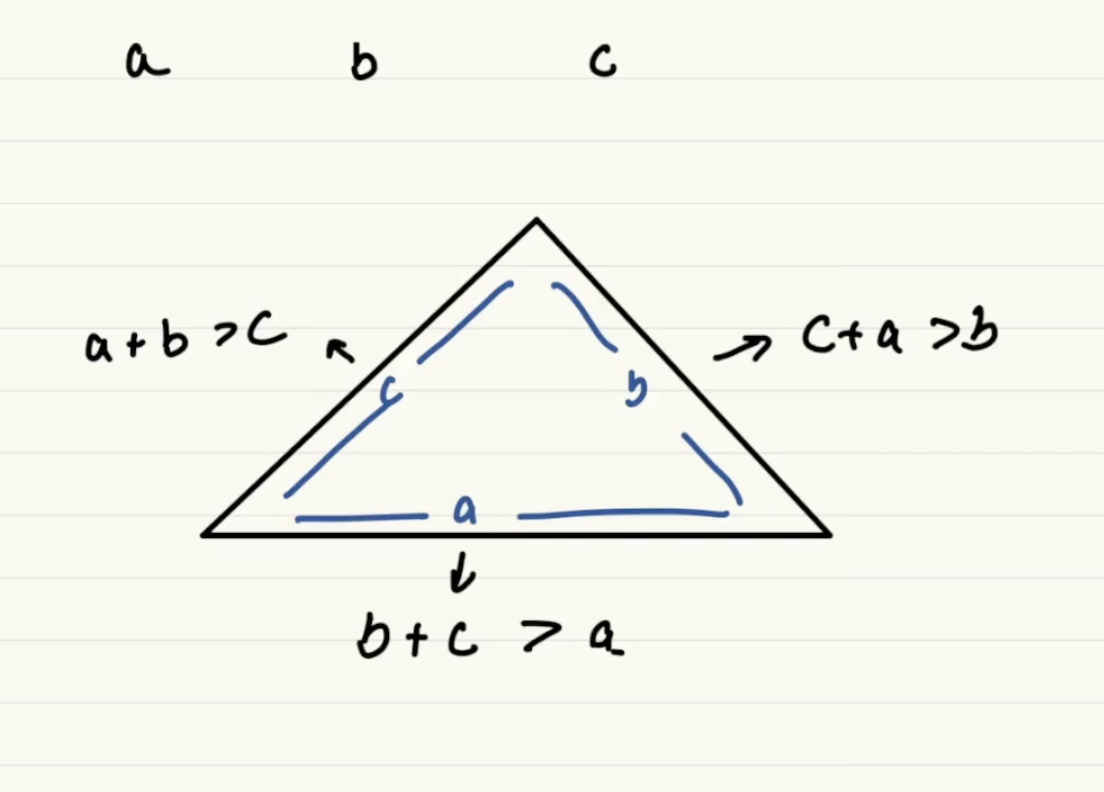 a b c
a + b > c
c + a > b
c
b
a
b + c > a